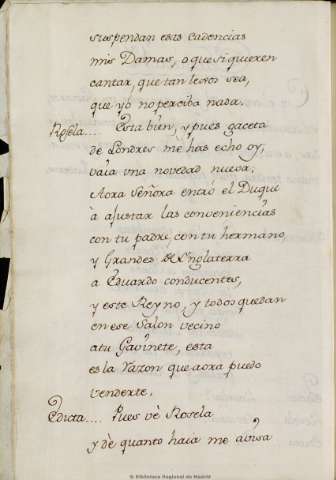 suspendan estas cadencias
mis Damas, o que si quieren
cantar, que tan lexos sea,
que yo no perciba nada.
Rosela.... Esta bien, y pues gaceta
de Londres me has echo oy,
vaia una novedad nueva;
Aora Señora entró el Duque
à ajustar las conveniencias
con tu padre, con tu hermano,
y Grandes de Ynglaterra
a Eduardo conducentes,
y este Reyno, y todos quedan
en ese Salon vecino
a tu Gavinete, esta
es la razon que aora puedo
venderte.
Edicta.... Pues vè Rosela
y dè quanto haia me avisa
© Biblioteca Regional de Madrid